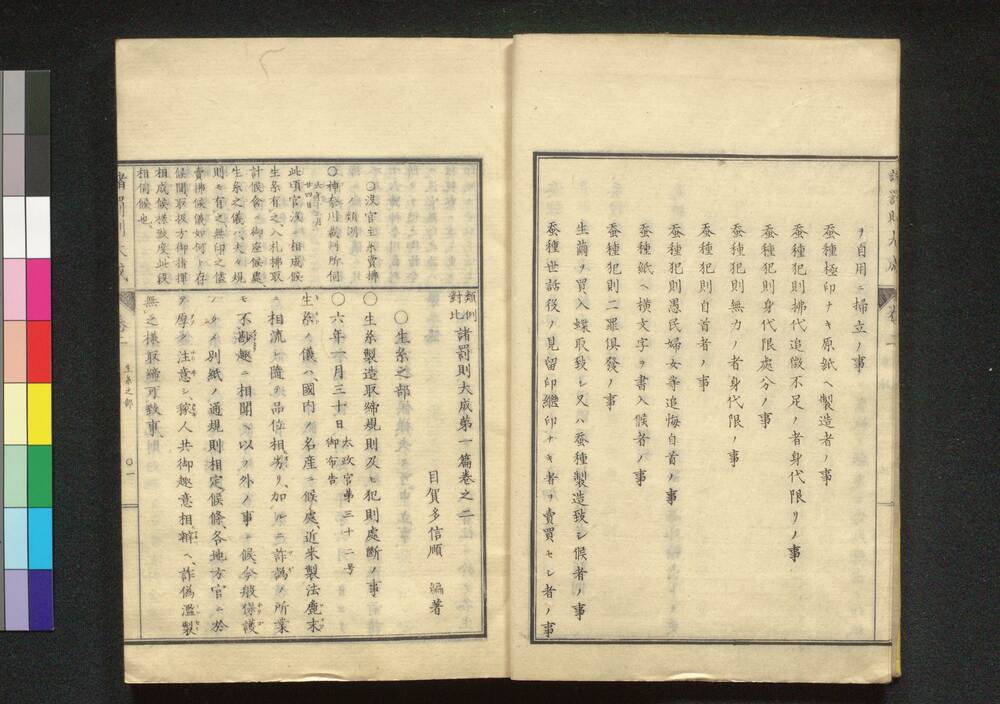 ヲ自用ニ掃立ノ事
蚕種極印ナキ原紙ヘ製造者ノ事
蚕種犯則拂代追徴不足ノ者身代限リノ事
蚕種犯則身代限處分ノ事
蚕種犯則無力ノ者身代限ノ事
蚕種犯則自首者ノ事
蚕種犯則愚民婦女等追悔自首ノ事
蚕種紙ヘ横文字ヲ書入候者ノ事
蚕種犯則二罪倶發ノ事
生繭ヲ買入蝶取致シ又ハ蚕種製造致シ候者ノ事
蚕種世話役ノ見留印継印ナキ者ヲ賣買セシ者ノ事
類例對比諸罰則大成第一篇卷之二
目賀多信順 編著
〇生糸之部
〇生糸製造取締規則及ヒ犯則處斷ノ事
〇六年一月三十日 太政官第三十二号御布告
生糸ノ儀ハ國内ノ名産ニ候處近来製法麁末
ニ相流レ隨テ品位相劣リ加ルニ詐偽ノ所業
モ不尠趣ニ相聞ヘ以ノ外ノ事ニ候今般保護
ノタメ別紙ノ通規則相定候條各地方官ニ於
テ厚ク注意シ稼人共御趣意相辨ヘ詐偽濫製
無之様取締可致事
〇没官生糸賣拂
類例
〇神奈川裁判所伺
此頃官没ニ相成候
生糸有之入札拂取
計候舍ニ御座候處
生糸之儀ハ夫々規
則モ有之無印之儘
賣拂候儀如何ト存
候間取扱方御指揮
相成候様致度此段
相伺候也
諸罰則大成
卷二
生糸之部
〇一